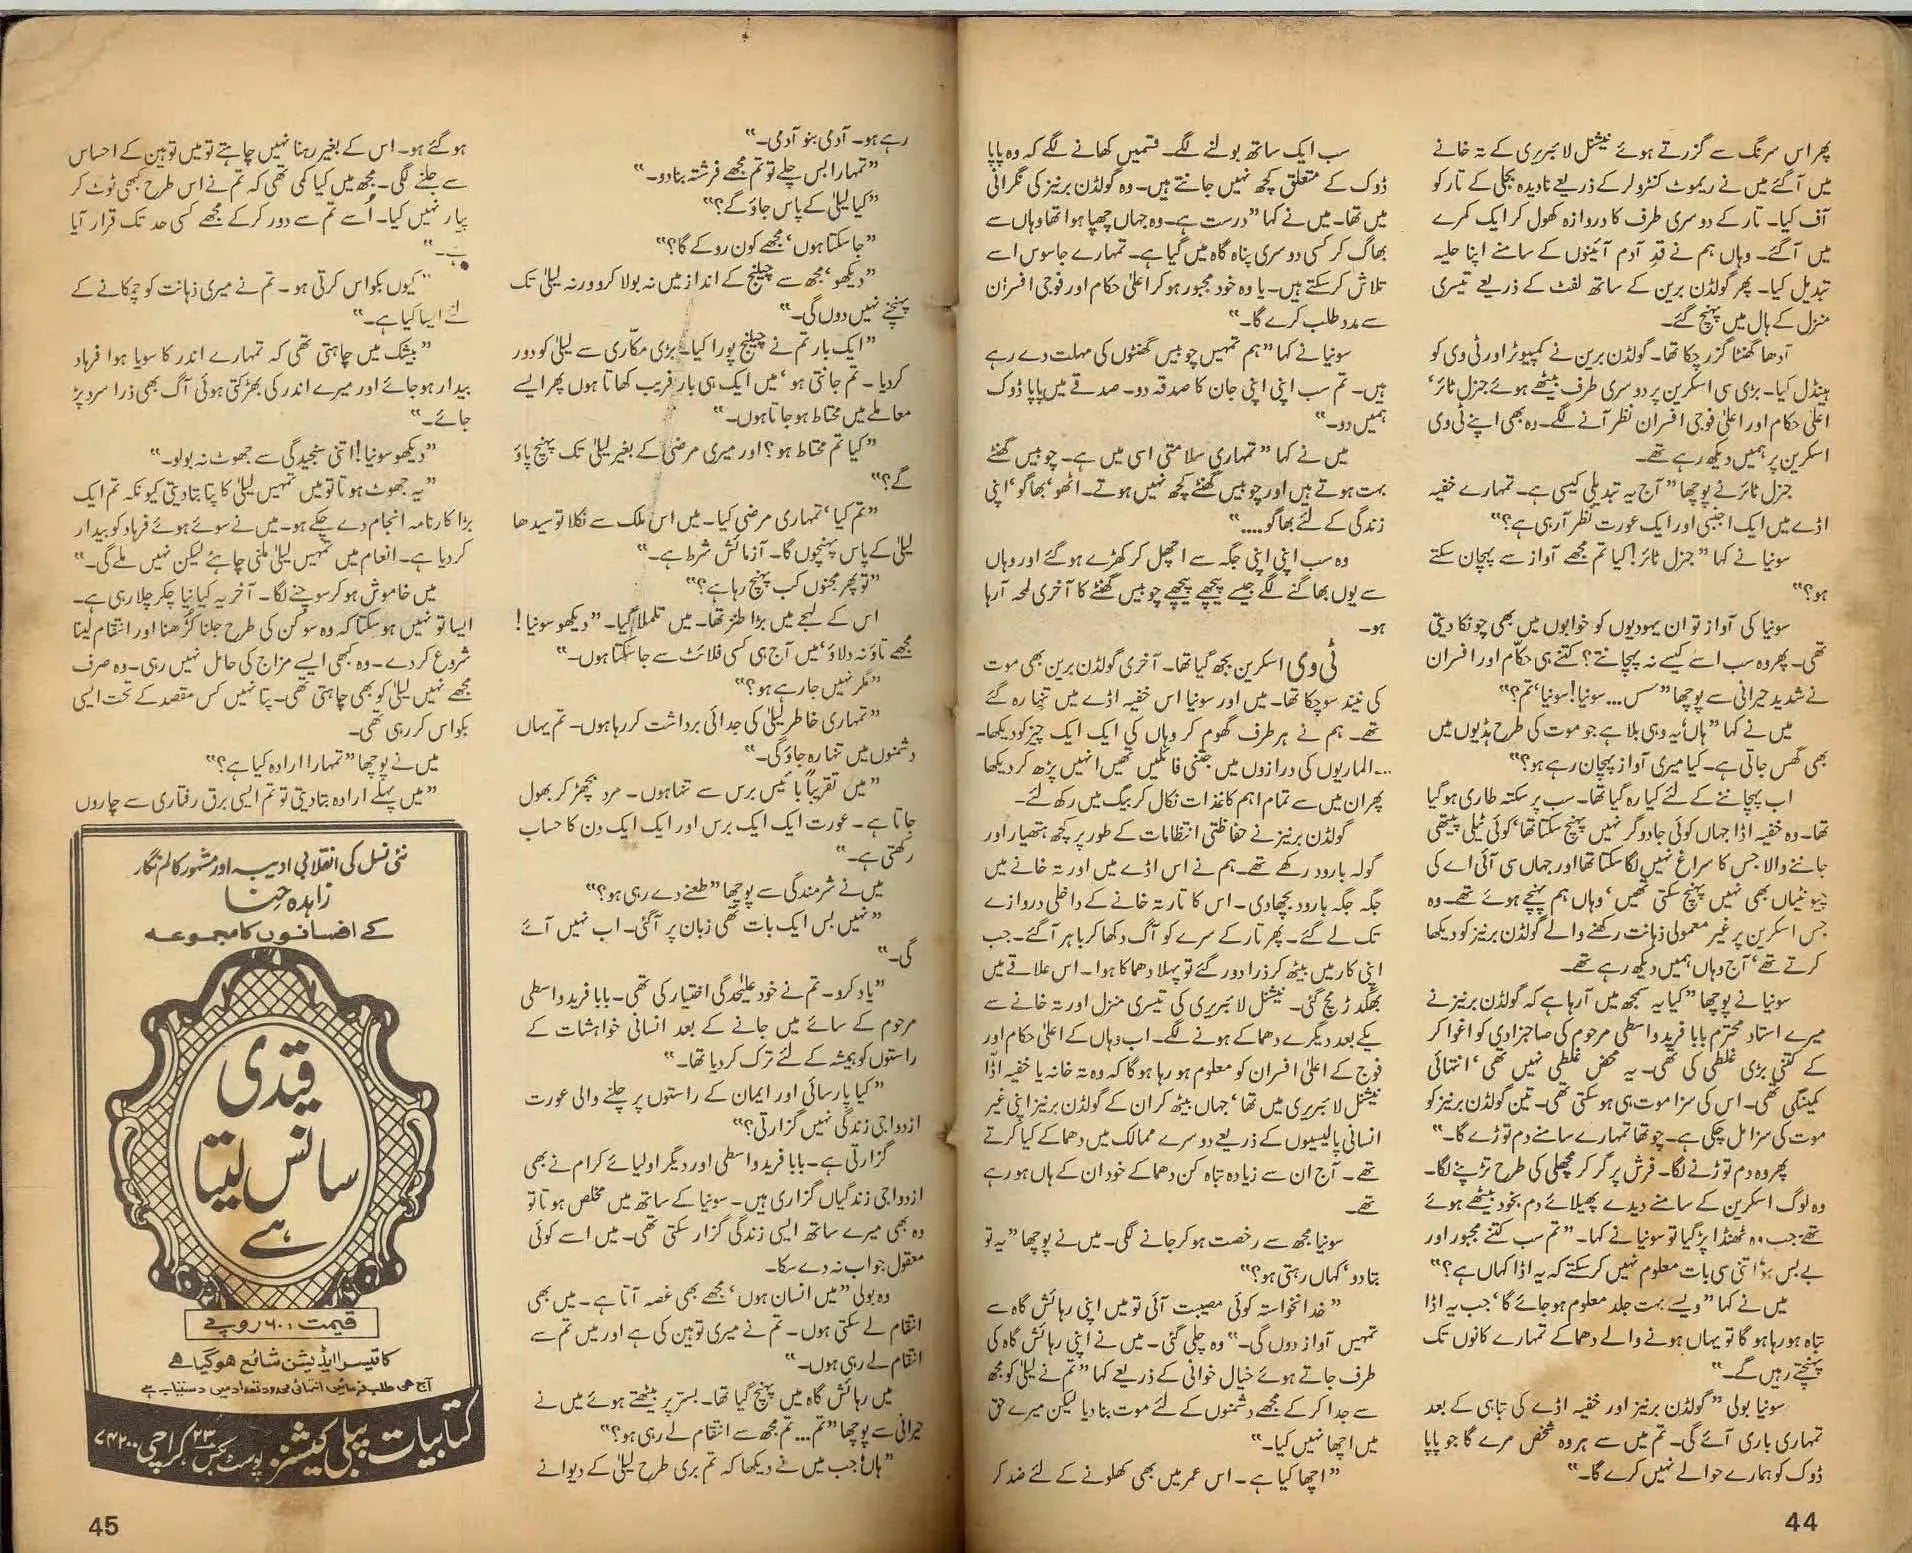 پھر اس سرنگ سے گزرتے ہوئے نیشنل لائبریری کے تہ خانے
میں آگئے میں نے ریموٹ کنٹرولر کے ذریعے نادیدہ بجلی کے تار کو
آف کیا۔ تار کے دوسری طرف کا دروازہ کھول کر ایک کمرے
میں آگئے۔ وہاں ہم نے قدِ آدم آئینوں کے سامنے اپنا حلیہ
تبدیل کیا۔ پھر گولڈن برین کے ساتھ لفٹ کے ذریعے تیسری
منزل کے ہال میں پہنچ گئے۔
آدھا گھنٹا گزر چکا تھا۔ گولڈن برین نے کمپیوٹر اور ٹی وی کو
ہینڈل کیا۔ بڑی سی اسکرین پر دوسری طرف بیٹھے ہوئے جنرل ٹائر،
اعلیٰ حکام اور اعلیٰ فوجی افسران نظر آنے لگے۔ وہ بھی اپنے ٹی وی
اسکرین پر ہمیں دیکھ رہے تھے۔
جنرل ٹائر نے پوچھا "آج یہ تبدیلی کیسی ہے۔ تمہارے خفیہ
اڈے میں ایک اجنبی اور ایک عورت نظر آرہی ہے؟"
سونیا نے کہا "جنرل ٹائر! کیا تم مجھے آواز سے پہچان سکتے
ہو؟"
سونیا کی آواز تو ان یہودیوں کو خوابوں میں بھی چونکا دیتی
تھی۔ پھر وہ سب اسے کیسے نہ پہچانتے؟ کتنے ہی حکّام اور افسران
نے شدید حیرانی سے پوچھا "سس... سونیا! سونیا، تم؟"
میں نے کہا "ہاں، یہ وہی بلا ہے جو موت کی طرح ہڈیوں میں
بھی گھس جاتی ہے۔ کیا میری آواز پہچان رہے ہو؟"
اب پہچاننے کے لئے کیا رہ گیا تھا۔ سب پر سکتہ طاری ہوگیا
تھا۔ وہ خفیہ اڈا جہاں کوئی جادوگر نہیں پہنچ سکتا تھا، کوئی ٹیلی پیتھی
جاننے والا جس کا سراغ نہیں لگا سکتا تھا اور جہاں سی آئی اے کی
چیونٹیاں بھی نہیں پہنچ سکتی تھیں، وہاں ہم پہنچے ہوئے تھے۔ وہ
جس اسکرین پر غیر معمولی ذہانت رکھنے والے گولڈن برینز کو دیکھا
کرتے تھے، آج وہاں ہمیں دیکھ رہے تھے۔
سونیا نے پوچھا "کیا یہ سمجھ میں آرہا ہے کہ گولڈن برینز نے
میرے استاد محترم بابا فرید واسطی مرحوم کی صاحبزادی کو اغوا کر
کے کتنی بڑی غلطی کی تھی۔ یہ محض غلطی نہیں تھی، انتہائی
کمینگی تھی۔ اس کی سزا موت ہی ہوسکتی تھی۔ تین گولڈن برینز کو
موت کی سزا مل چکی ہے۔ چوتھا تمہارے سامنے دم توڑے گا۔"
پھر وہ دم توڑنے لگا۔ فرش پر گر کر مچھلی کی طرح تڑپنے لگا۔
وہ لوگ اسکرین کے سامنے دیدے پھیلائے دم بخود بیٹھے ہوئے
تھے جب وہ ٹھنڈا پڑ گیا تو سونیا نے کہا۔ "تم سب کتنے مجبور اور
بے بس ہو، اتنی سی بات معلوم نہیں کرسکتے کہ یہ اڈا کہاں ہے؟"
میں نے کہا "ویسے بہت جلد معلوم ہوجائے گا، جب یہ اڈا
تباہ ہو رہا ہوگا تو یہاں ہونے والے دھماکے تمہارے کانوں تک
پہنچتے رہیں گے۔"
سونیا بولی "گولڈن برینز اور خفیہ اڈے کی تباہی کے بعد
تمہاری باری آئے گی۔ تم میں سے ہر وہ شخص مرے گا جو پاپا
ڈوک کو ہمارے حوالے نہیں کرے گا۔"
سب ایک ساتھ بولنے لگے۔ قسمیں کھانے لگے کہ وہ پاپا
ڈوک کے متعلق کچھ نہیں جانتے ہیں۔ وہ گولڈن برینز کی نگرانی
میں تھا۔ میں نے کہا "درست ہے۔ وہ جہاں چھپا ہوا تھا وہاں سے
بھاگ کر کسی دوسری پناہ گاہ میں گیا ہے۔ تمہارے جاسوس اسے
تلاش کرسکتے ہیں۔ یا وہ خود مجبور ہوکر اعلیٰ حکام اور فوجی افسران
سے مدد طلب کرے گا۔"
سونیا نے کہا "ہم تمہیں چوبیس گھنٹوں کی مہلت دے رہے
ہیں۔ تم سب اپنی اپنی جان کا صدقہ دو۔ صدقے میں پاپا ڈوک
ہمیں دو۔"
میں نے کہا "تمہاری سلامتی اسی میں ہے۔ چوبیس گھنٹے
بہت ہوتے ہیں اور چوبیس گھنٹے کچھ نہیں ہوتے۔ اٹھو، بھاگو، اپنی
زندگی کے لئے بھاگو....."
وہ سب اپنی اپنی جگہ سے اچھل کر کھڑے ہوگئے اور وہاں
سے یوں بھاگنے لگے جیسے پیچھے پیچھے چوبیس گھنٹے کا آخری لمحہ آرہا
ہو۔
ٹی وی اسکرین بجھ گیا تھا۔ آخری گولڈن برین بھی موت
کی نیند سوچکا تھا۔ میں اور سونیا اس خفیہ اڈے میں تنہا رہ گئے
تھے۔ ہم نے ہر طرف گھوم کر وہاں کی ایک ایک چیز کو دیکھا۔
... الماریوں کی درازوں میں جتنی فائلیں تھیں انہیں پڑھ کر دیکھا
پھر ان میں سے تمام اہم کاغذات نکال کر بیگ میں رکھ لئے۔
گولڈن برینز نے حفاظتی انتظامات کے طور پر کچھ ہتھیار اور
گولہ بارود رکھے تھے۔ ہم نے اس اڈے میں اور تہ خانے میں
جگہ جگہ بارود بچھادی۔ اس کا تار تہ خانے کے داخلی دروازے
تک لے گئے۔ پھر تار کے سرے کو آگ دکھا کر باہر آگئے۔ جب
اپنی کار میں بیٹھ کر ذرا دور گئے تو پہلا دھماکا ہوا۔ اس علاقے میں
بھگدڑ مچ گئی۔ نیشنل لائبریری کی تیسری منزل اور تہ خانے سے
یکے بعد دیگرے دھماکے ہونے لگے۔ اب وہاں کے اعلیٰ حکام اور
فوج کے اعلیٰ افسران کو معلوم ہو رہا ہوگا کہ وہ تہ خانہ یا خفیہ اڈا
نیشنل لائبریری میں تھا، جہاں بیٹھ کر ان کے گولڈن برینز اپنی غیر
انسانی پالیسیوں کے ذریعے دوسرے ممالک میں دھماکے کیا کرتے
تھے۔ آج ان سے زیادہ تباہ کن دھماکے خود ان کے ہاں ہو رہے
تھے۔
سونیا مجھ سے رخصت ہوکر جانے لگی۔ میں نے پوچھا "یہ تو
بتا دو، کہاں رہتی ہو؟"
"خدانخواستہ کوئی مصیبت آئی تو میں اپنی رہائش گاہ سے
تمہیں آواز دوں گی۔" وہ چلی گئی۔ میں نے اپنی رہائش گاہ کی
طرف جاتے ہوئے خیال خوانی کے ذریعے کہا "تم نے لیلیٰ کو مجھ
سے جدا کرکے مجھے دشمنوں کے لئے موت بنا دیا لیکن میرے حق
میں اچھا نہیں کیا۔"
"اچھا کیا ہے۔ اس عمر میں بھی کھلونے کے لئے ضد کر
44
رہے ہو۔ آدمی بنو آدمی۔"
"تمہارا بس چلے تو تم مجھے فرشتہ بنا دو۔"
"کیا لیلیٰ کے پاس جاؤ گے؟"
"جاسکتا ہوں، مجھے کون روکے گا؟"
"دیکھو، مجھ سے چیلنج کے انداز میں نہ بولا کرو ورنہ لیلیٰ تک
پہنچنے نہیں دوں گی۔"
"ایک بار تم نے چیلنج پورا کیا۔ بڑی مکّاری سے لیلیٰ کو دور
کردیا۔ تم جانتی ہو، میں ایک ہی بار فریب کھاتا ہوں پھر ایسے
معاملے میں محتاط ہوجاتا ہوں۔"
"کیا تم محتاط ہو؟ اور میری مرضی کے بغیر لیلیٰ تک پہنچ پاؤ
گے؟"
"تم کیا، تمہاری مرضی کیا۔ میں اس ملک سے نکلا تو سیدھا
لیلیٰ کے پاس پہنچوں گا۔ آزمائش شرط ہے۔"
"تو پھر مجنوں کب پہنچ رہا ہے؟"
اس کے لہجے میں بڑا طنز تھا۔ میں تلملا گیا۔ "دیکھو سونیا!
مجھے تاؤ نہ دلاؤ، میں آج ہی کسی فلائٹ سے جاسکتا ہوں۔"
"مگر نہیں جارہے ہو؟"
"تمہاری خاطر لیلیٰ کی جدائی برداشت کر رہا ہوں۔ تم یہاں
دشمنوں میں تنہا رہ جاؤ گی۔"
"میں تقریباً بائیس برس سے تنہا ہوں۔ مرد بچھڑ کر بھول
جاتا ہے۔ عورت ایک ایک برس اور ایک ایک دن کا حساب
رکھتی ہے۔"
میں نے شرمندگی سے پوچھا "طعنے دے رہی ہو؟"
"نہیں بس ایک بات تھی زبان پر آگئی۔ اب نہیں آئے
گی۔"
"یاد کرو۔ تم نے خود علیٰحدگی اختیار کی تھی۔ بابا فرید واسطی
مرحوم کے سائے میں جانے کے بعد انسانی خواہشات کے
راستوں کو ہمیشہ کے لئے ترک کردیا تھا۔"
"کیا پارسائی اور ایمان کے راستوں پر چلنے والی عورت
ازدواجی زندگی نہیں گزارتی؟"
گزارتی ہے۔ بابا فرید واسطی اور دیگر اولیائے کرام نے بھی
ازدواجی زندگیاں گزاری ہیں۔ سونیا کے ساتھ میں مخلص ہوتا تو
وہ بھی میرے ساتھ ایسی زندگی گزار سکتی تھی۔ میں اسے کوئی
معقول جواب نہ دے سکا۔
وہ بولی "میں انسان ہوں، مجھے بھی غصہ آتا ہے۔ میں بھی
انتقام لے سکتی ہوں۔ تم نے میری توہین کی ہے اور میں تم سے
انتقام لے رہی ہوں۔"
میں رہائش گاہ میں پہنچ گیا تھا۔ بستر پر بیٹھتے ہوئے میں نے
حیرانی سے پوچھا "تم... تم مجھ سے انتقام لے رہی ہو؟"
"ہاں، جب میں نے دیکھا کہ تم بری طرح لیلیٰ کے دیوانے
ہوگئے ہو۔ اس کے بغیر رہنا نہیں چاہتے تو میں توہین کے احساس
سے جلنے لگی۔ مجھ میں کیا کمی تھی کہ تم نے اس طرح کبھی ٹوٹ کر
پیار نہیں کیا۔ اُسے تم سے دور کرکے مجھے کسی حد تک قرار آیا
ہے۔"
"کیوں بکواس کرتی ہو۔ تم نے میری ذہانت کو چمکانے کے
لئے ایسا کیا ہے۔"
"بیشک میں چاہتی تھی کہ تمہارے اندر کا سویا ہوا فرہاد
بیدار ہوجائے اور میرے اندر کی بھڑکتی ہوئی آگ بھی ذرا سرد پڑ
جائے۔"
"دیکھو سونیا! اتنی سنجیدگی سے جھوٹ نہ بولو۔"
"یہ جھوٹ ہوتا تو میں تمہیں لیلیٰ کا پتا بتا دیتی کیونکہ تم ایک
بڑا کارنامہ انجام دے چکے ہو۔ میں نے سوئے ہوئے فرہاد کو بیدار
کردیا ہے۔ انعام میں تمہیں لیلیٰ ملنی چاہئے لیکن نہیں ملے گی۔"
میں خاموش ہوکر سوچنے لگا۔ آخر یہ کیا نیا چکر چلا رہی ہے۔
ایسا تو نہیں ہوسکتا کہ وہ سوکن کی طرح جلنا کڑھنا اور انتقام لینا
شروع کردے۔ وہ کبھی ایسے مزاج کی حامل نہیں رہی۔ وہ صرف
مجھے نہیں لیلیٰ کو بھی چاہتی تھی۔ پتا نہیں کس مقصد کے تحت ایسی
بکواس کر رہی تھی۔
میں نے پوچھا "تمہارا ارادہ کیا ہے؟"
"میں پہلے ارادہ بتادیتی تو تم ایسی برق رفتاری سے چاروں
نئی نسل کی انقلابی ادیبہ اور مشہور کالم نگار
زاہدہ حنا
کے افسانوں کا مجموعہ
قیدی
سانس لیتا
ہے
قیمت : ۶۰ روپے
کا تیسرا ایڈیشن شائع ہوگیا ہے
آج ہی طلب فرمائیں انتہائی محدود تعداد میں دستیاب ہے
کتابیات پبلی کیشنز پوسٹ بکس ۲۳ کراچی ۷۴۲۰۰
45